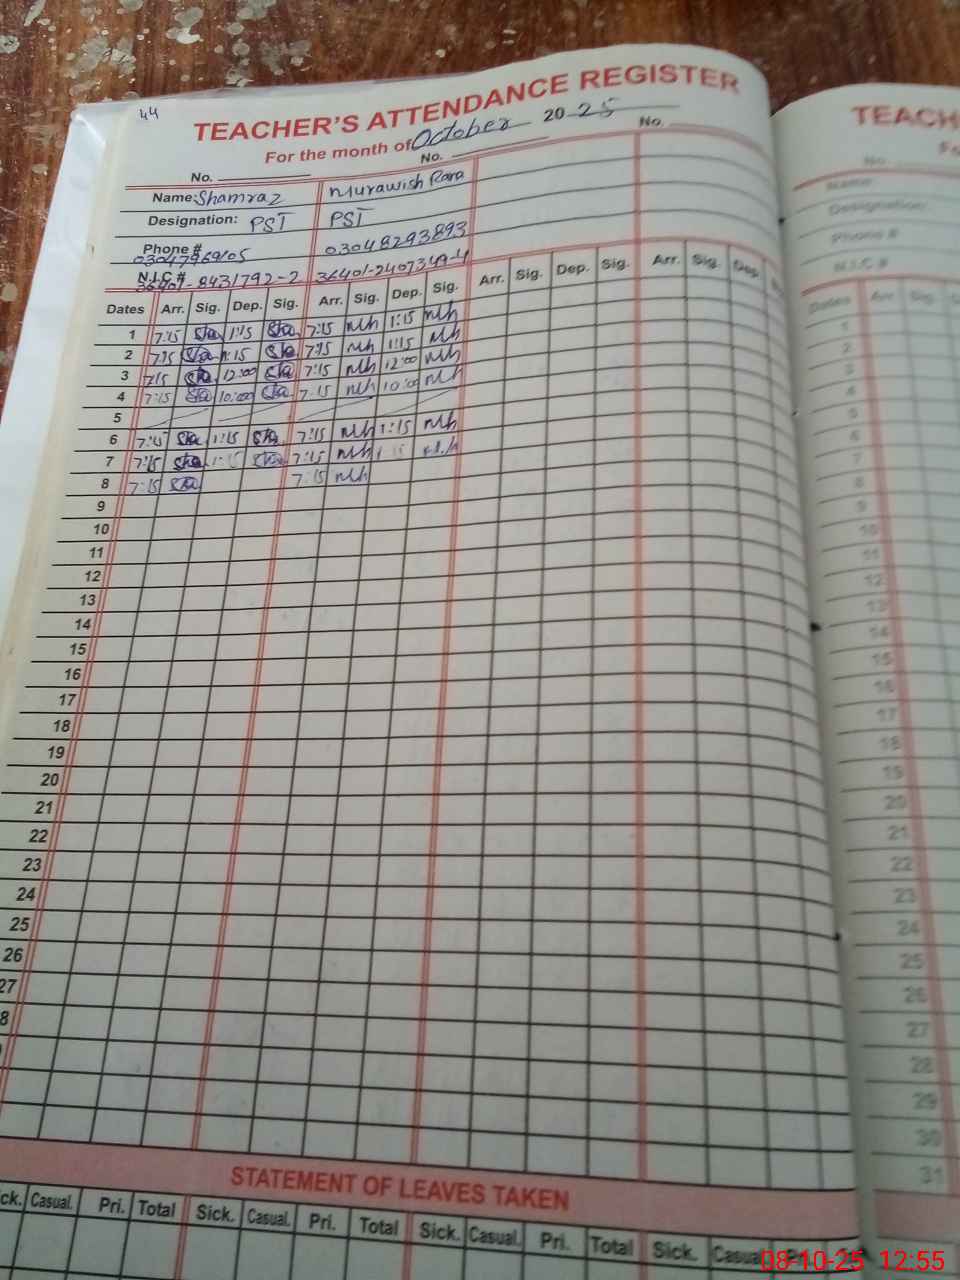 44
TEACHER'S ATTENDANCE REGISTER
For the month of October 2025
No. No. No.
Name: Shamraz Murawish Rara
Designation: PST PST
Phone # 03048293893
N.I.C #
Dates Arr. Sig. Dep. Sig. Arr. Sig. Dep. Sig. Arr. Sig. Dep. Sig. Arr. Sig. Dep.
1 7:15 Sha 1:15 Sha 7:15 Mh 1:15 Mh
2 7:15 Sha 1:15 Sha 7:15 Mh 1:15 Mh
3 7:15 Sha 12:00 Sha 7:15 Mh 12:00 Mh
4 7:15 Sha 10:00 Sha 7:15 Mh 10:00 Mh
5
6 7:15 Sha 1:15 Sha 7:15 Mh 1:15 Mh
7 7:15 Sha 1:15 Sha 7:15 Mh 1:15 Mh
8 7:15 Sha 7:15 Mh
9
10
11
12
13
14
15
16
17
18
19
20
21
22
23
24
25
26
27
8
STATEMENT OF LEAVES TAKEN
ck. Casual. Pri. Total Sick. Casual. Pri. Total Sick. Casual. Pri. Total Sick. Casual
TEACH
No.
Name:
Designation:
Phone #
N.I.C #
Dates Arr. Sig.
1
2
3
4
5
6
7
8
9
10
11
12
13
14
15
16
17
18
19
20
21
22
23
24
25
26
27
28
29
30
31
08-10-25 12:55